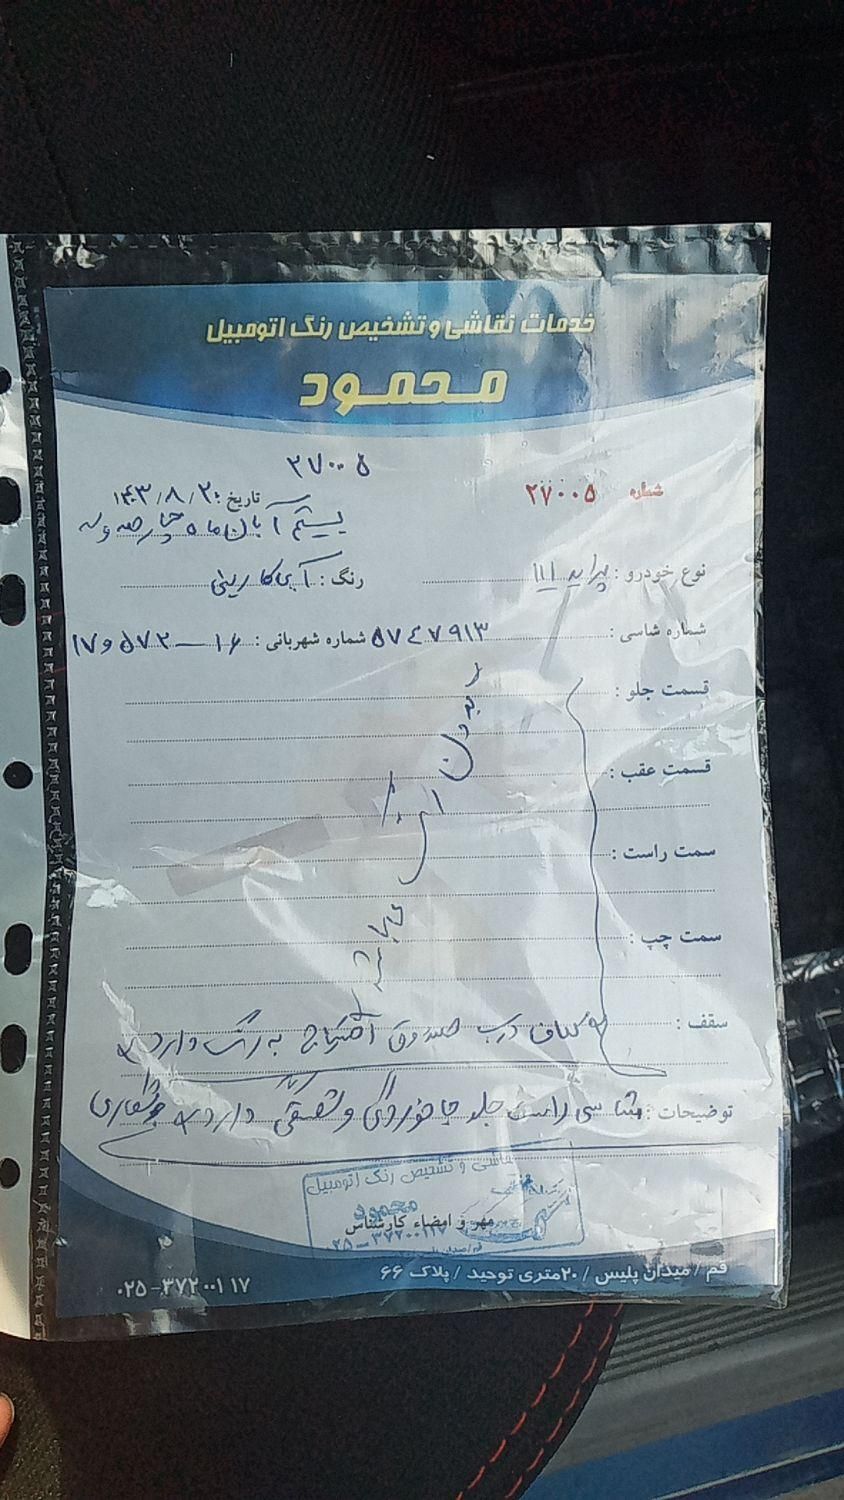 خدمات نقاشی و تشخیص رنگ اتومبیل
محمود
۲۷۰۰۵
شماره ۲۷۰۰۵
تاریخ: ۱۴۰۳/۸/۲۰
بیستم آبان ماه چهارصد و سه
نوع خودرو: پراید ۱۱۱ رنگ: آبی کاربنی
شماره شاسی: ۵۷۴۷۹۱۳ شماره شهربانی: ۱۶ — ۵۷۲ و ۱۷
قسمت جلو:
قسمت عقب:
سمت راست:
سمت چپ:
بدون رنگ می باشد
سقف: گلاف درب صندوق احتیاج به رنگ دارد
توضیحات: شاسی راست جلو جاخوردگی و دارد
نقاشی و تشخیص رنگ اتومبیل
محمود
مهر و امضاء کارشناس
۰۲۵-۳۷۲۰۰۱۱۷
قم / میدان پلیس / ۲۰متری توحید / پلاک ۶۶
۰۲۵-۳۷۲۰۰۱۱۷